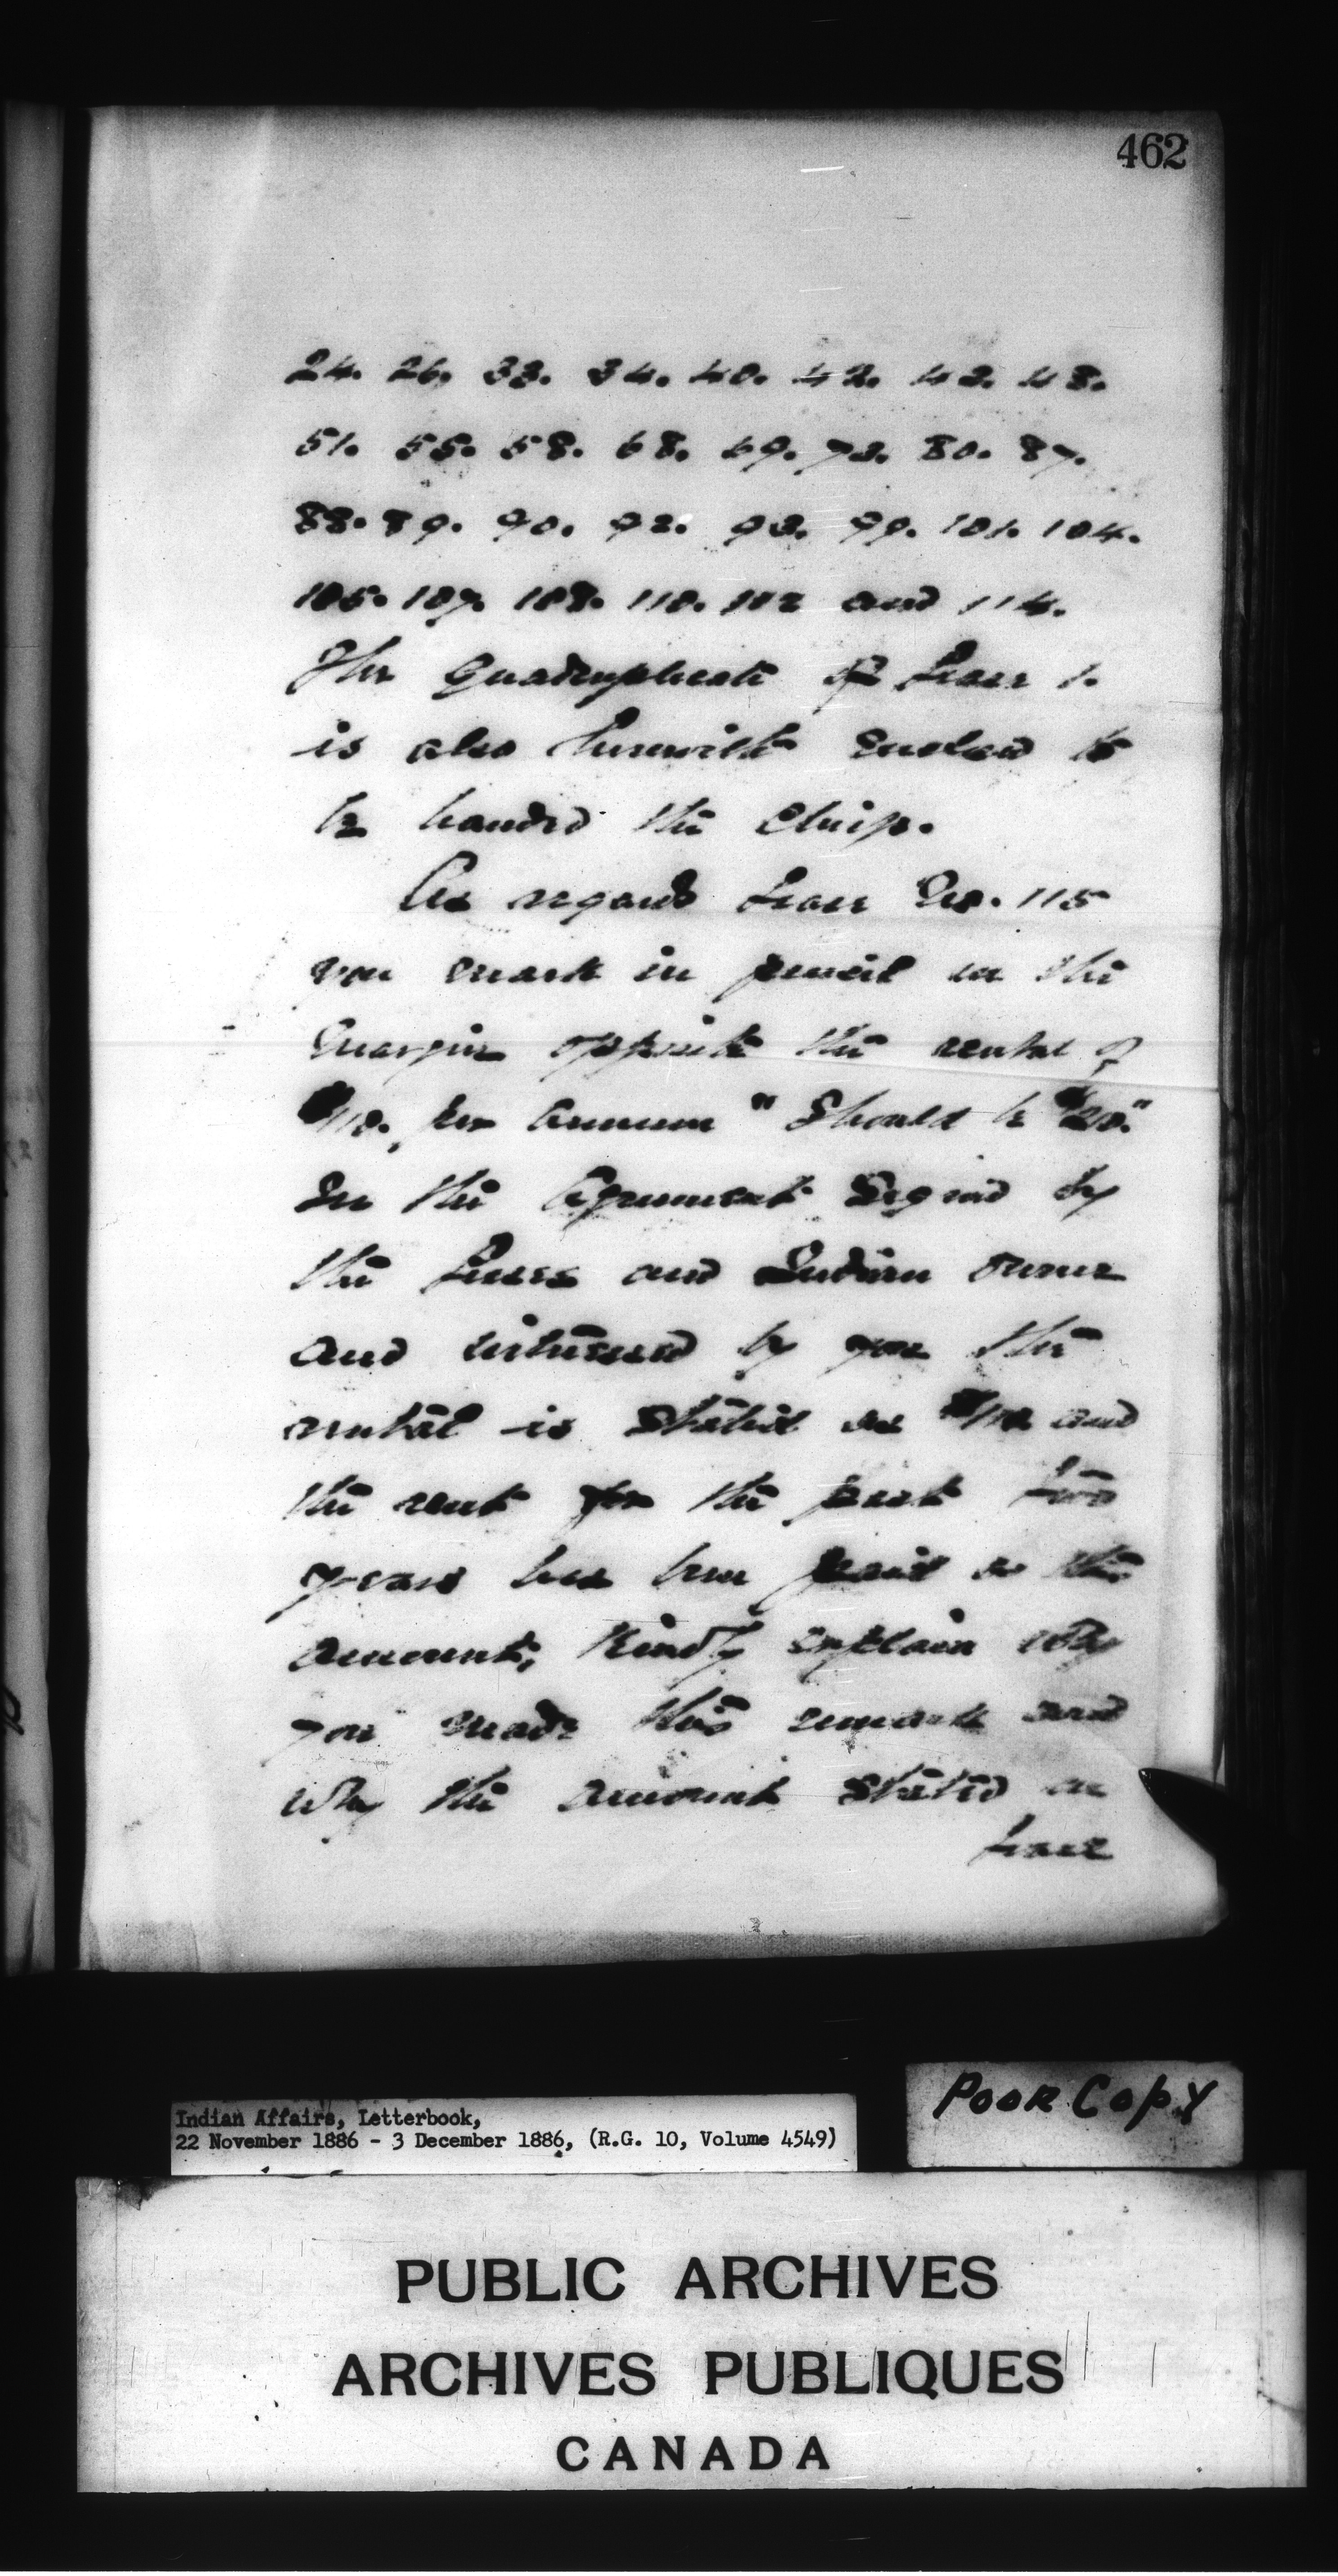 462
24. 26. 33. 34. 40. 42. 43. 48.
51. 55. 58. 68. 69. 73. 80. 87.
88. 89. 90. 92. 93. 99. 101. 104.
105. 107. 108. 110. 112 and 114.
The Quadruplicate of Lease 1.
is also herewith enclosed to
be handed the Chief.
As regards Lease No. 115
you mark in pencil in the
Margin opposite the rental of
$10. per Annum "Should be $20."
In the Agreement Signed by
the Lessee and Indian owner
and witnessed by you the
rental is Stated as $10 and
the rent for the past two
years has been paid at this
amount; Kindly explain why
you made this remark and
why the amount Stated in
Lease
Indian Affairs, Letterbook,
22 November 1886 - 3 December 1886, (R.G. 10, Volume 4549)
POOR COPY
PUBLIC ARCHIVES
ARCHIVES PUBLIQUES
CANADA